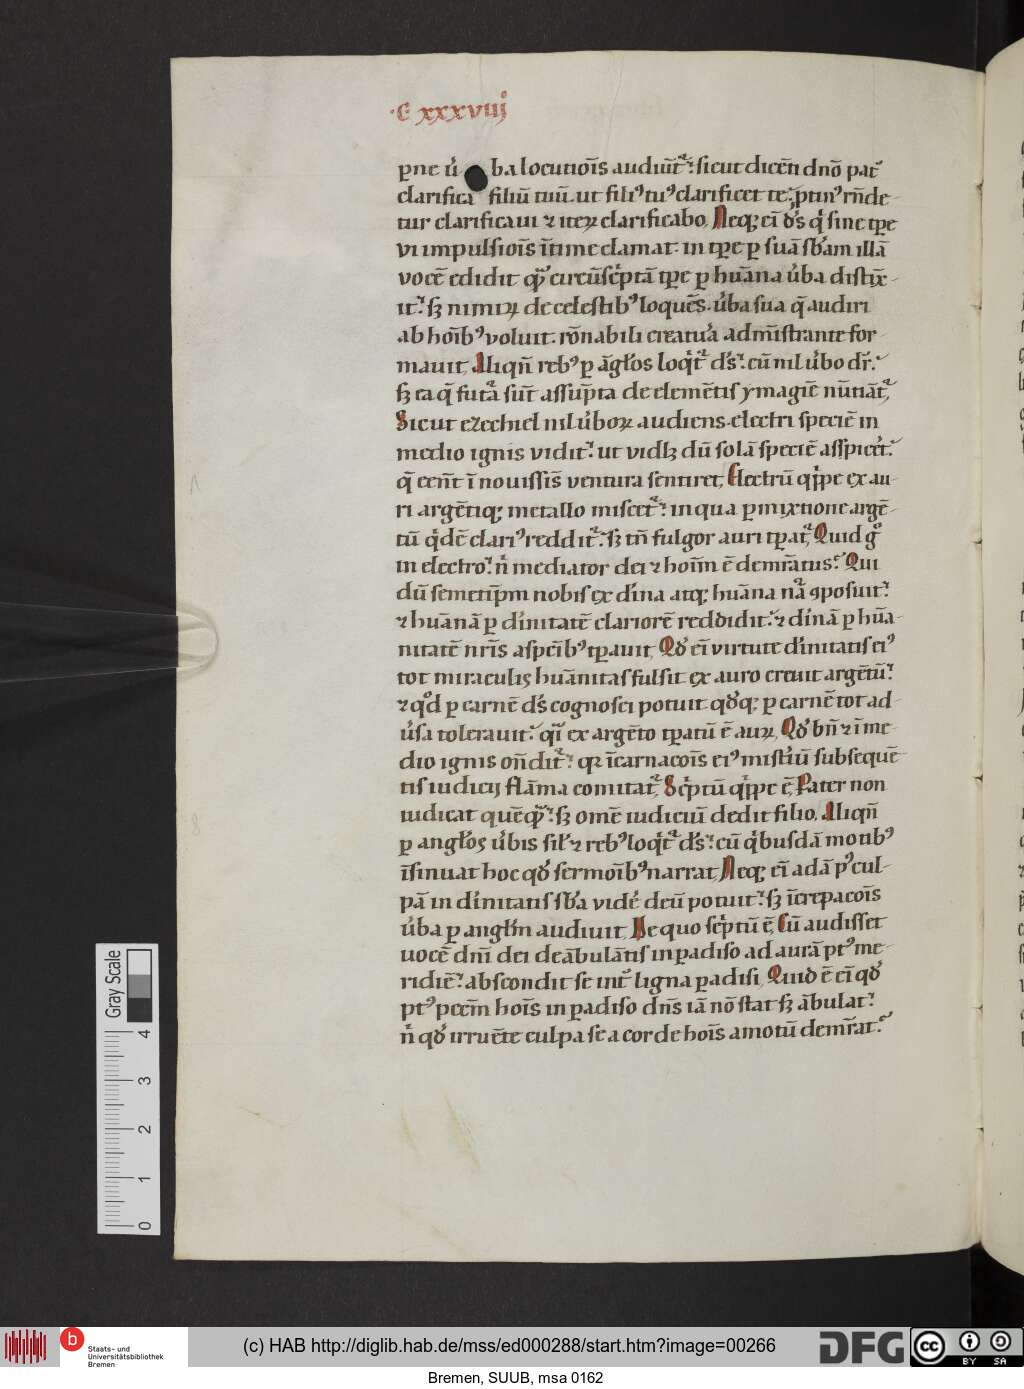 ·C· xxxviiij
pne ũ ba locutiois̄ audiuit̃: sicut dicēti dnō pat̃
clarifica filiū tuū. ut filiꝰ tuꝰ clarificet te. ptinꝰ rn̄de-
tur clarificaui ⁊ iteꝝ clarificabo. Neq; ei̅ ds̄ qͥ sine tp̅e
vi impulsiois̄ ītime clamat. in tp̅e p suā sb̅am illā
vocē edidit qͣ circūscͥptā tp̅e p huāna ũba distīx-
it. sꝫ nimiꝝ de celestibꝰ loquēs. ũba sua q̄ audiri
ab hoībꝰ voluit. rōnabili creatuͣa adm̄istrante for-
mauit. Aliqn̄ rebꝰ p āglos loqͥtͣ ds̄. cū nil ũbo dr̄.
sꝫ ea q̄ futͣa sūt assūpta de elemētis ymagiē nūtiāt̃.
Sicut ezechiel nil ũboꝝ audiens. electri speciē in
medio ignis vidit. ut vidꝫ dū solā speciē asspicet̃.
q̄ eēnt ī nouissis̄ ventura sentiret. Electrū qͥppe ex au-
ri argētiq; metallo miscet̃. in qua pmixtione argē-
tū qͥdē clariꝰ reddit̃. sꝫ tn̄ fulgor auri tp̅at̃. Quid gͦ
in electro. nͥ mediator dei ⁊ hoīm ē demr̄atus. Qui
dū semetip̄m nobis ex dīna atq; huāna nͣa ꝯposuit.
⁊ huānā p dīnitatē clariorē reddidit. ⁊ dīnā p huā-
nitatē nrīs aspcībꝰ tp̅auit. Qd̓ ei̅ virtute dīnitatis eiꝰ
tot miraculis huānitas fulsit ex auro creuit argētū.
⁊ qͦd p carnē ds̄ cognosci potuit qd̓q; p carnē tot ad-
ũsa tolerauit. qͣi ex argēto tp̅atū ē auꝝ. Qd̓ bn̄ ⁊ ī me-
dio ignis on̄dit̃. qꝛ īcarnacoīs eiꝰ mist̃iū subsequē-
tis iudicij flāma comitat̃. Scͥptū qͥppe ē. Pater non
iudicat quēqͣ. sꝫ omē iudiciū dedit filio. Aliqn̄
p anglos ũbis sil̃ ⁊ rebꝰ loqͥtͣ ds̄. cū qͥbusdā motibꝰ
īsinuat hoc qd̓ sermoībꝰ narrat. Neq; ei̅ adā pꝰ cul-
pā in dīnitatis sb̅a vidē deū potuit. sꝫ īcrepacoīs
ũba p angl̃m audiuit. De quo scͥptū ē. Cū audisset
uocē dnī dei deābulātis in padiso ad aurā ptꝰ me-
ridiē. abscondit se int̃ ligna padisi. Quid ē ei̅ qd̓
ptꝰ pcc̄m hoīs in padiso dn̄s iā nō stat sꝫ ābulat.
nͥ qd̓ irruēte culpa se a corde hoīs amotū demr̄at.
Gray Scale
4
3
2
1
0
b
Staats- und
Universitätsbibliothek
Bremen
(c) HAB http://diglib.hab.de/mss/ed000288/start.htm?image=00266
DFG
cc BY SA
Bremen, SUUB, msa 0162